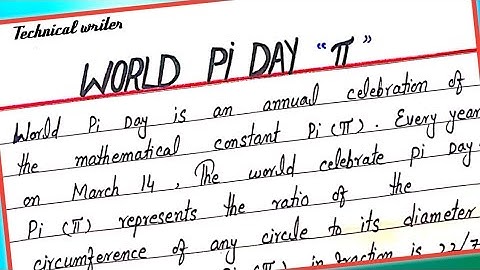 Technical writer
WORLD Pi DAY "π"
World Pi Day is an annual celebration of
the mathematical constant Pi (π). Every year
on March 14, The world celebrate pi Day.
Pi (π) represents the ratio of the
circumference of any circle to its diameter
(π) in fraction is 22/7